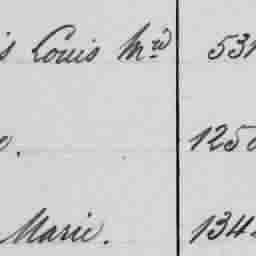 s Louis Md 531
o. 125
Marie. 134